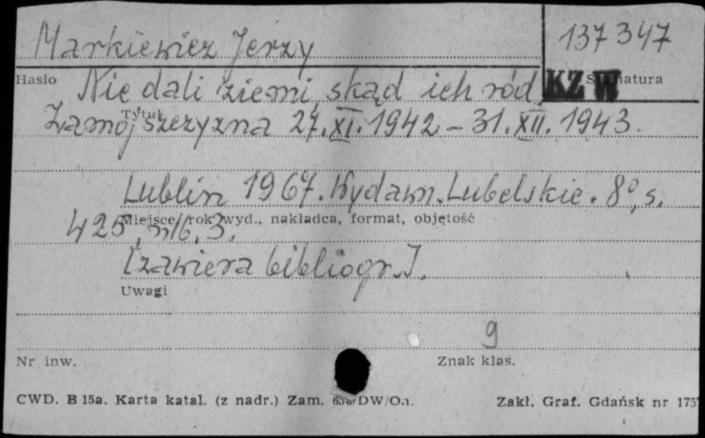 Markiewicz Jerzy
137347
Hasło
Sygnatura
KZ W
Nie dali ziemi skąd ich ród.
Tytuł
Zamojszczyzna 27.XI.1942 – 31.XII.1943.
Lublin 1967. Wydawn. Lubelskie. 8°, s.
Miejsce, rok wyd., nakładca, format, objętość
425, 3.
[zawiera bibliogr.].
Uwagi
9
Nr inw.
Znak klas.
CWD. B 15a. Karta katal. (z nadr.) Zam.
Zakł. Graf. Gdańsk nr 175